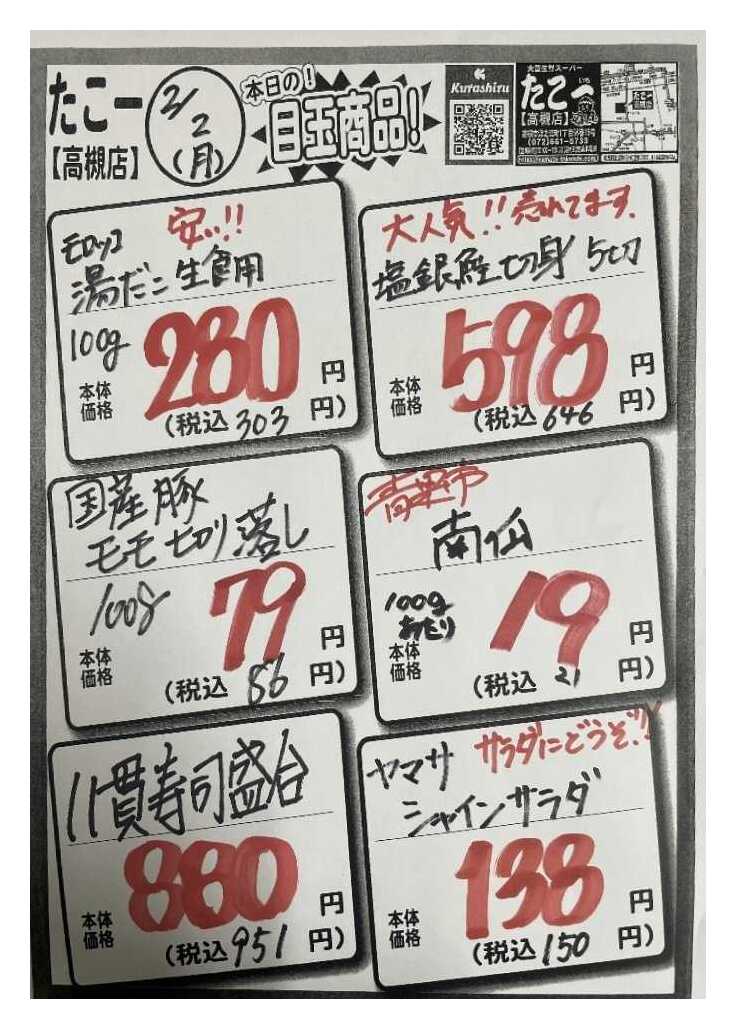 たこ一
【高槻店】
2/2
(月)
本日の!
目玉商品!
Kurashiru
たこ一
【高槻店】
(072)661-5733
安い!!
モロッコ
湯だこ生食用
100g
本体
価格
280
円
(税込 303 円)
大人気!!売れてます.
塩銀鮭切身 5切
本体
価格
598
円
(税込 646 円)
国産豚
モモ切り落し
100g
本体
価格
79
円
(税込 86 円)
青果市
南仏
100g
あたり
本体
価格
19
円
(税込 21 円)
11貫寿司盛台
本体
価格
880
円
(税込 951 円)
ヤマサ サラダにどうぞ!!
シャインサラダ
本体
価格
138
円
(税込 150 円)